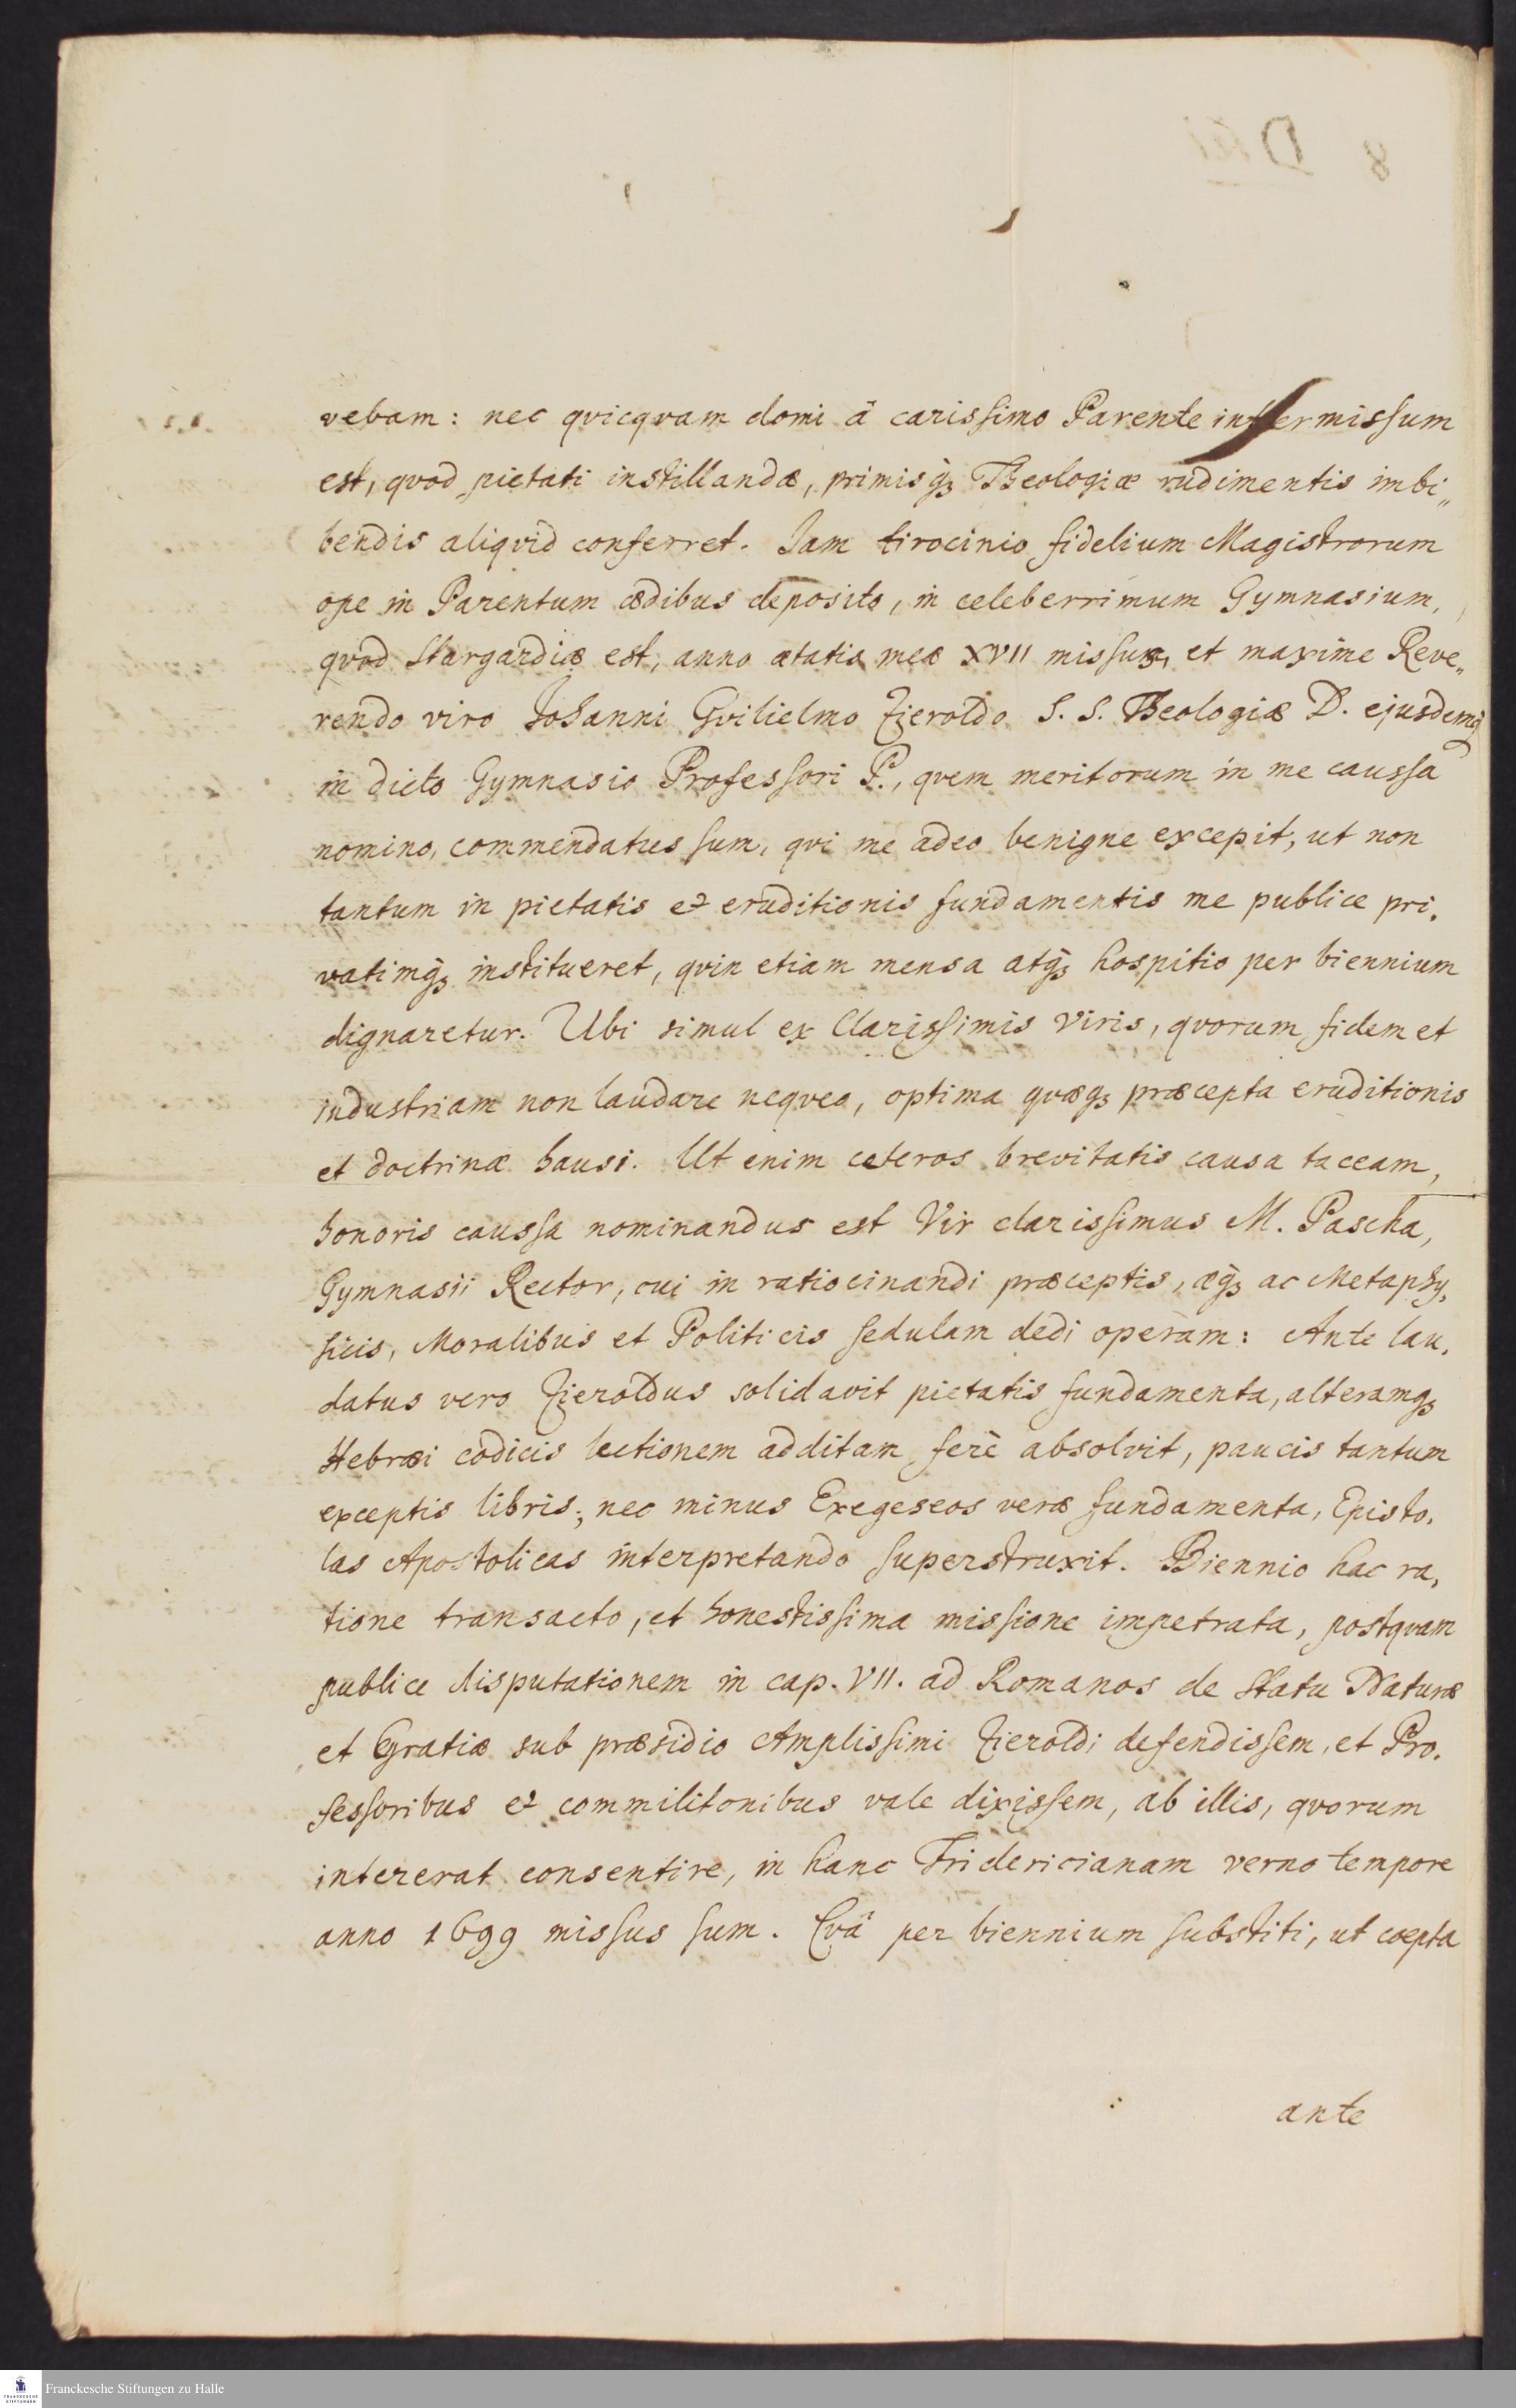 vebam: nec qvicqvam domi â carissimo Parente intermissum
est, qvod pietati instillandæ, primisq₃ Theologiæ rudimentis imbi„
bendis aliqvid conferret. Jam tirocinio fidelium Magistrorum
ope in Parentum ædibus deposito, in celeberrimum Gymnasium,
qvod Stargardiæ est, anno ætatis meæ XVII missus, et maxime Reve„
rendo viro Johanni Gvilielmo Zieroldo S. S. Theologiæ D. ejusdemq₃
in dicto Gymnasio Professori P., qvem meritorum in me caussa
nomino, commendatus sum, qvi me adeo benigne excepit, ut non
tantum in pietatis et eruditionis fundamentis me publice pri,
vatimq₃ institueret, qvin etiam mensa atq₃ hospitio per biennium
dignaretur. Ubi simul ex Clarissimis Viris, qvorum fidem et
industriam non laudare neqveo, optima qvæq₃ præcepta eruditionis
et doctrinæ hausi. Ut enim ceteros brevitatis causa taceam,
honoris caussa nominandus est Vir clarissimus M. Pascha,
Gymnasii Rector, cui in ratiocinandi præceptis, æq₃ ac Metaphy,
sicis, Moralibus et Politicis sedulam dedi operam: Ante lau,
datus vero Zieroldus solidavit pietatis fundamenta, alteramq₃
Hebræi codicis lectionem additam ferè absolvit, paucis tantum
exceptis libris; nec minus Exegeseos veræ fundamenta, Episto,
las Apostolicas interpretando superstruxit. Biennio hac ra,
tione transacto, et honestissima missione impetrata, postqvam
publice disputationem in cap. VII. ad Romanos de Statu Naturæ
et Gratiæ sub præsidio Amplissimi Zieroldi defendissem, et Pro,
fessoribus et commilitonibus vale dixissem, ab illis, qvorum
intererat consentire, in hanc Fridericianam verno tempore
anno 1699 missus sum. Qvâ per biennium substiti, ut cœpta
ante
Franckesche Stiftungen zu Halle